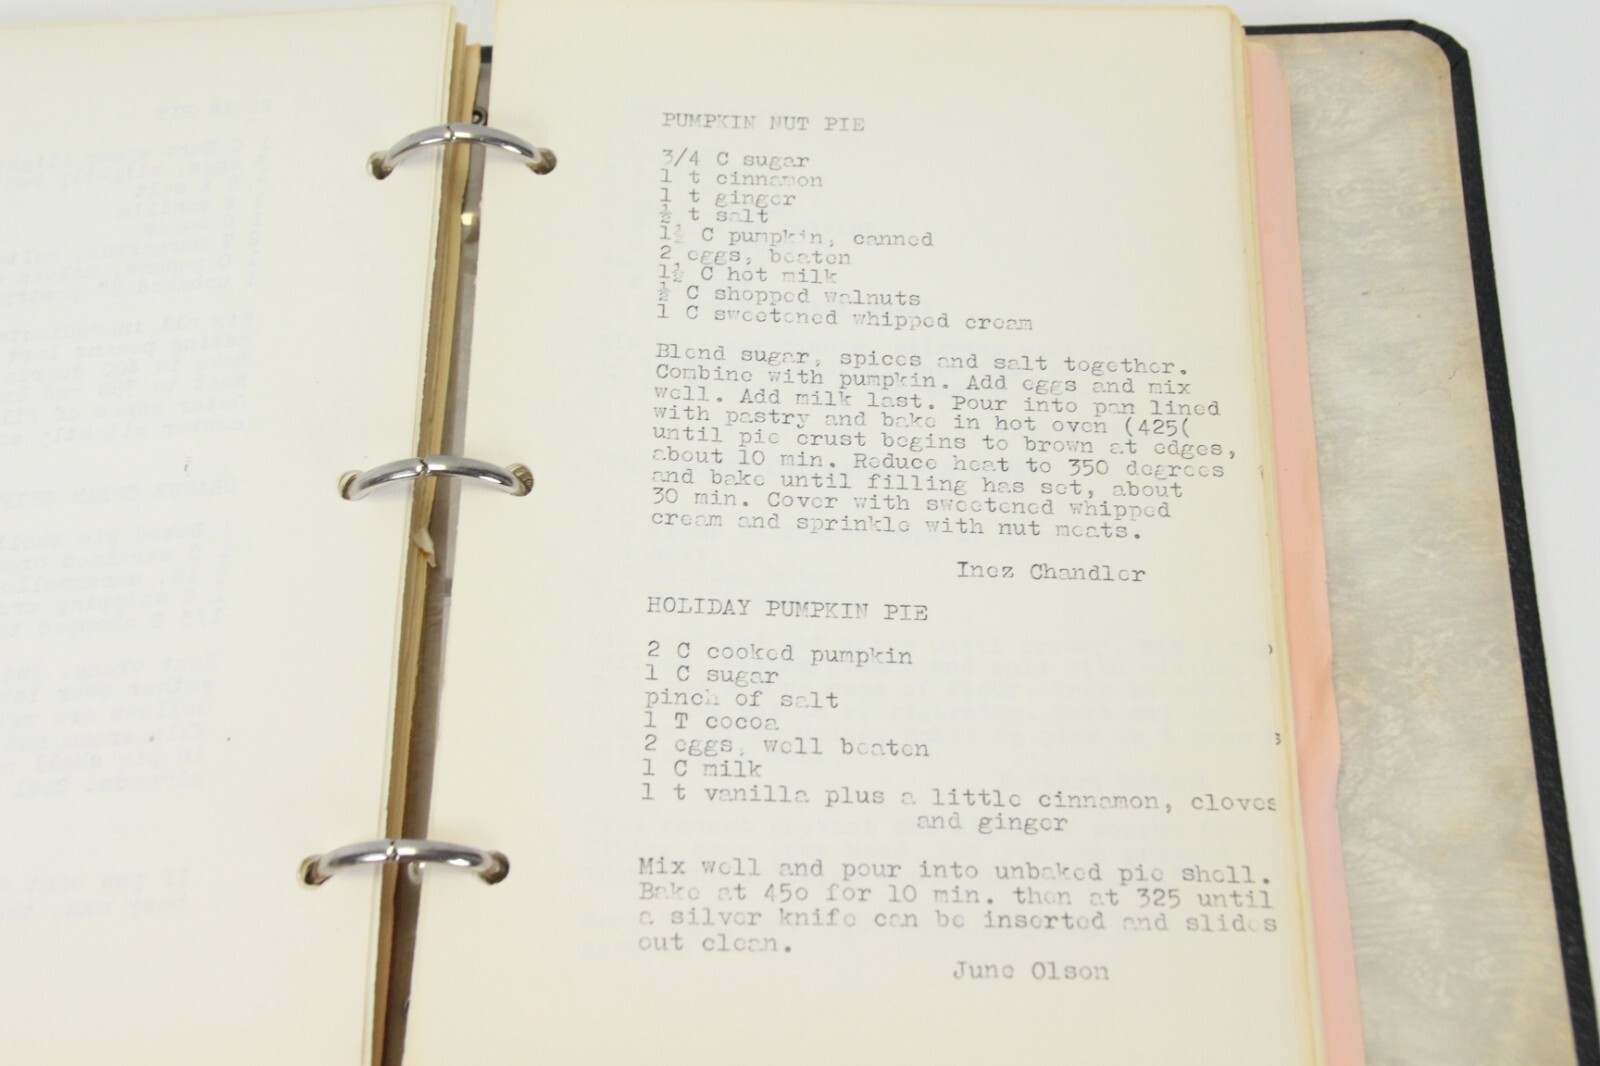 PUMPKIN NUT PIE
3/4 C sugar
1 t cinnamon
1 t ginger
½ t salt
1½ C pumpkin, canned
2 eggs, beaten
1½ C hot milk
½ C shopped walnuts
1 C sweetened whipped cream
Blend sugar, spices and salt together.
Combine with pumpkin. Add eggs and mix
well. Add milk last. Pour into pan lined
with pastry and bake in hot oven (425(
until pie crust begins to brown at edges,
about 10 min. Reduce heat to 350 degrees
and bake until filling has set, about
30 min. Cover with sweetened whipped
cream and sprinkle with nut meats.
Inez Chandler
HOLIDAY PUMPKIN PIE
2 C cooked pumpkin
1 C sugar
pinch of salt
1 T cocoa
2 eggs, well beaten
1 C milk
1 t vanilla plus a little cinnamon, cloves
and ginger
Mix well and pour into unbaked pie shell.
Bake at 45o for 10 min. then at 325 until
a silver knife can be inserted and slides
out clean.
June Olson